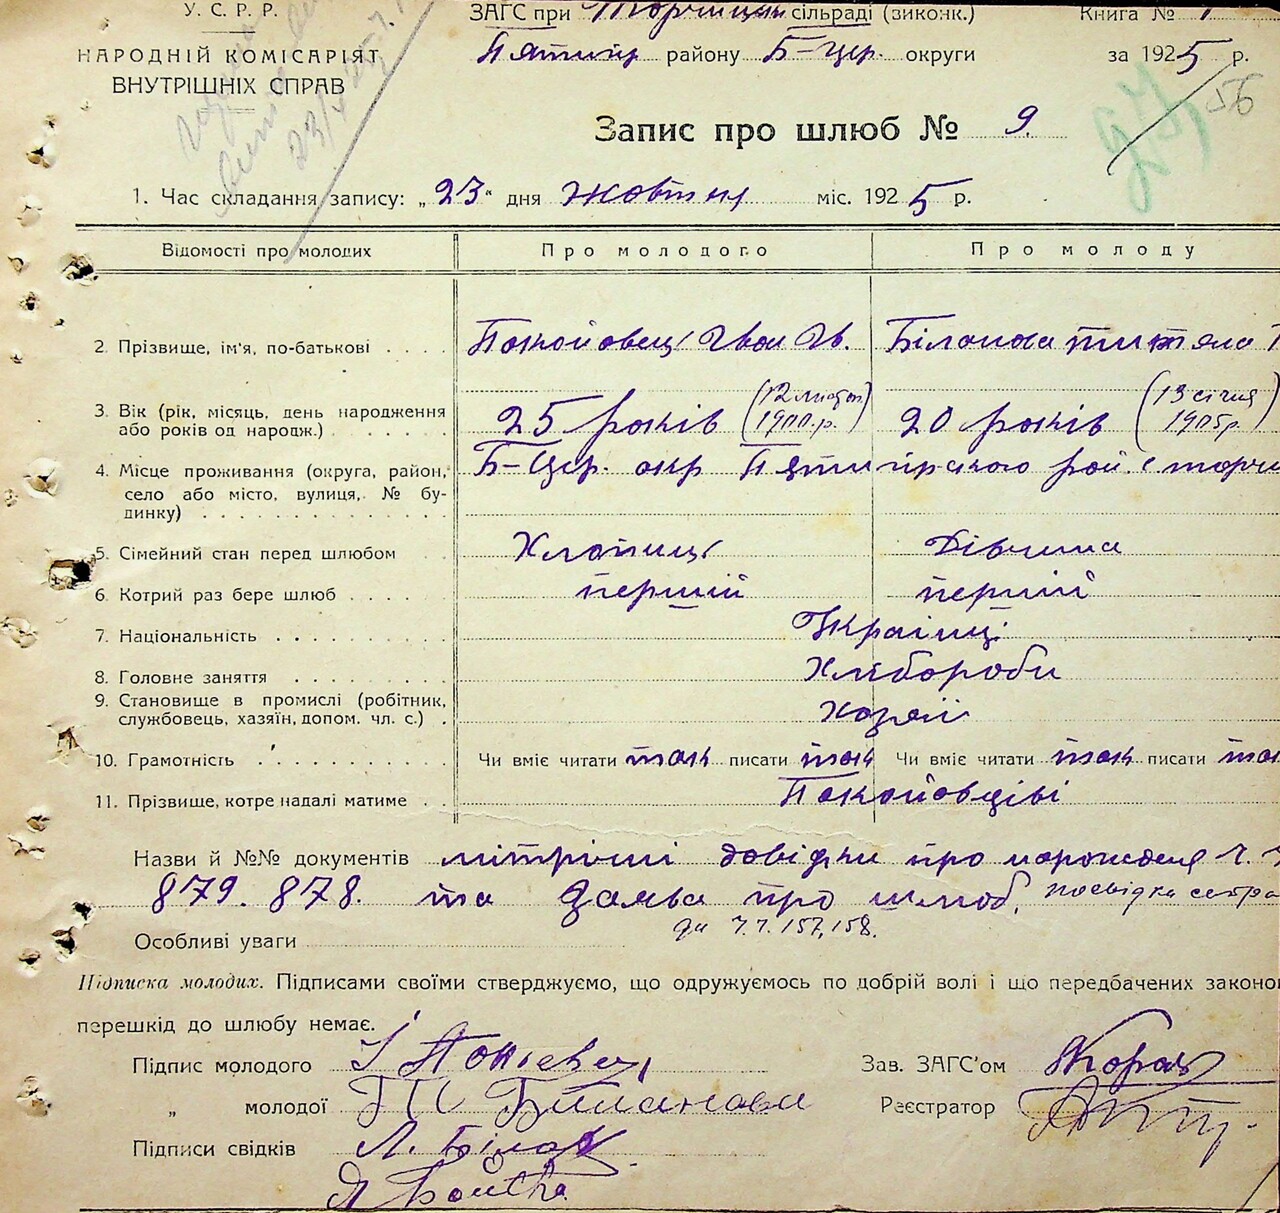 У. С. Р. Р.
НАРОДНІЙ КОМІСАРІЯТ
ВНУТРІШНІХ СПРАВ
ЗАГС при сільраді (виконк.) Книга №
Пятигір району Б-Цер. округи за 1925 р.
56
Запис про шлюб № 9.
1. Час складання запису: „23“ дня Жовтня міс. 1925 р.
Відомості про молодих Про молодого Про молоду
2. Прізвище, ім'я, по-батькові . . . . Покойовець Іван Ів. Біланова
3. Вік (рік, місяць, день народження
або років од народж.) 25 років (12 лютого 1900 р.) 20 років (13 січня 1905 р.)
4. Місце проживання (округа, район,
село або місто, вулиця, № бу-
динку) Б-Цер. окр Пятигірського рай. с
5. Сімейний стан перед шлюбом Хлопець Дівчина
6. Котрий раз бере шлюб перший перший
7. Національність Українці
8. Головне заняття Хлібороби
9. Становище в промислі (робітник,
службовець, хазяїн, допом. чл. с.)
10. Грамотність Чи вміє читати так писати так Чи вміє читати так писати так
11. Прізвище, котре надалі матиме Покойовціві
Назви й №№ документів довідки про
879. 878. та Заява про шлюб, посвідка
157, 158.
Особливі уваги
Підписка молодих. Підписами своїми стверджуємо, що одружуємось по добрій волі і що передбачених законо
перешкід до шлюбу немає.
Підпис молодого Зав. ЗАГС'ом
„ молодої Біланова Реєстратор
Підписи свідків Л. Білан